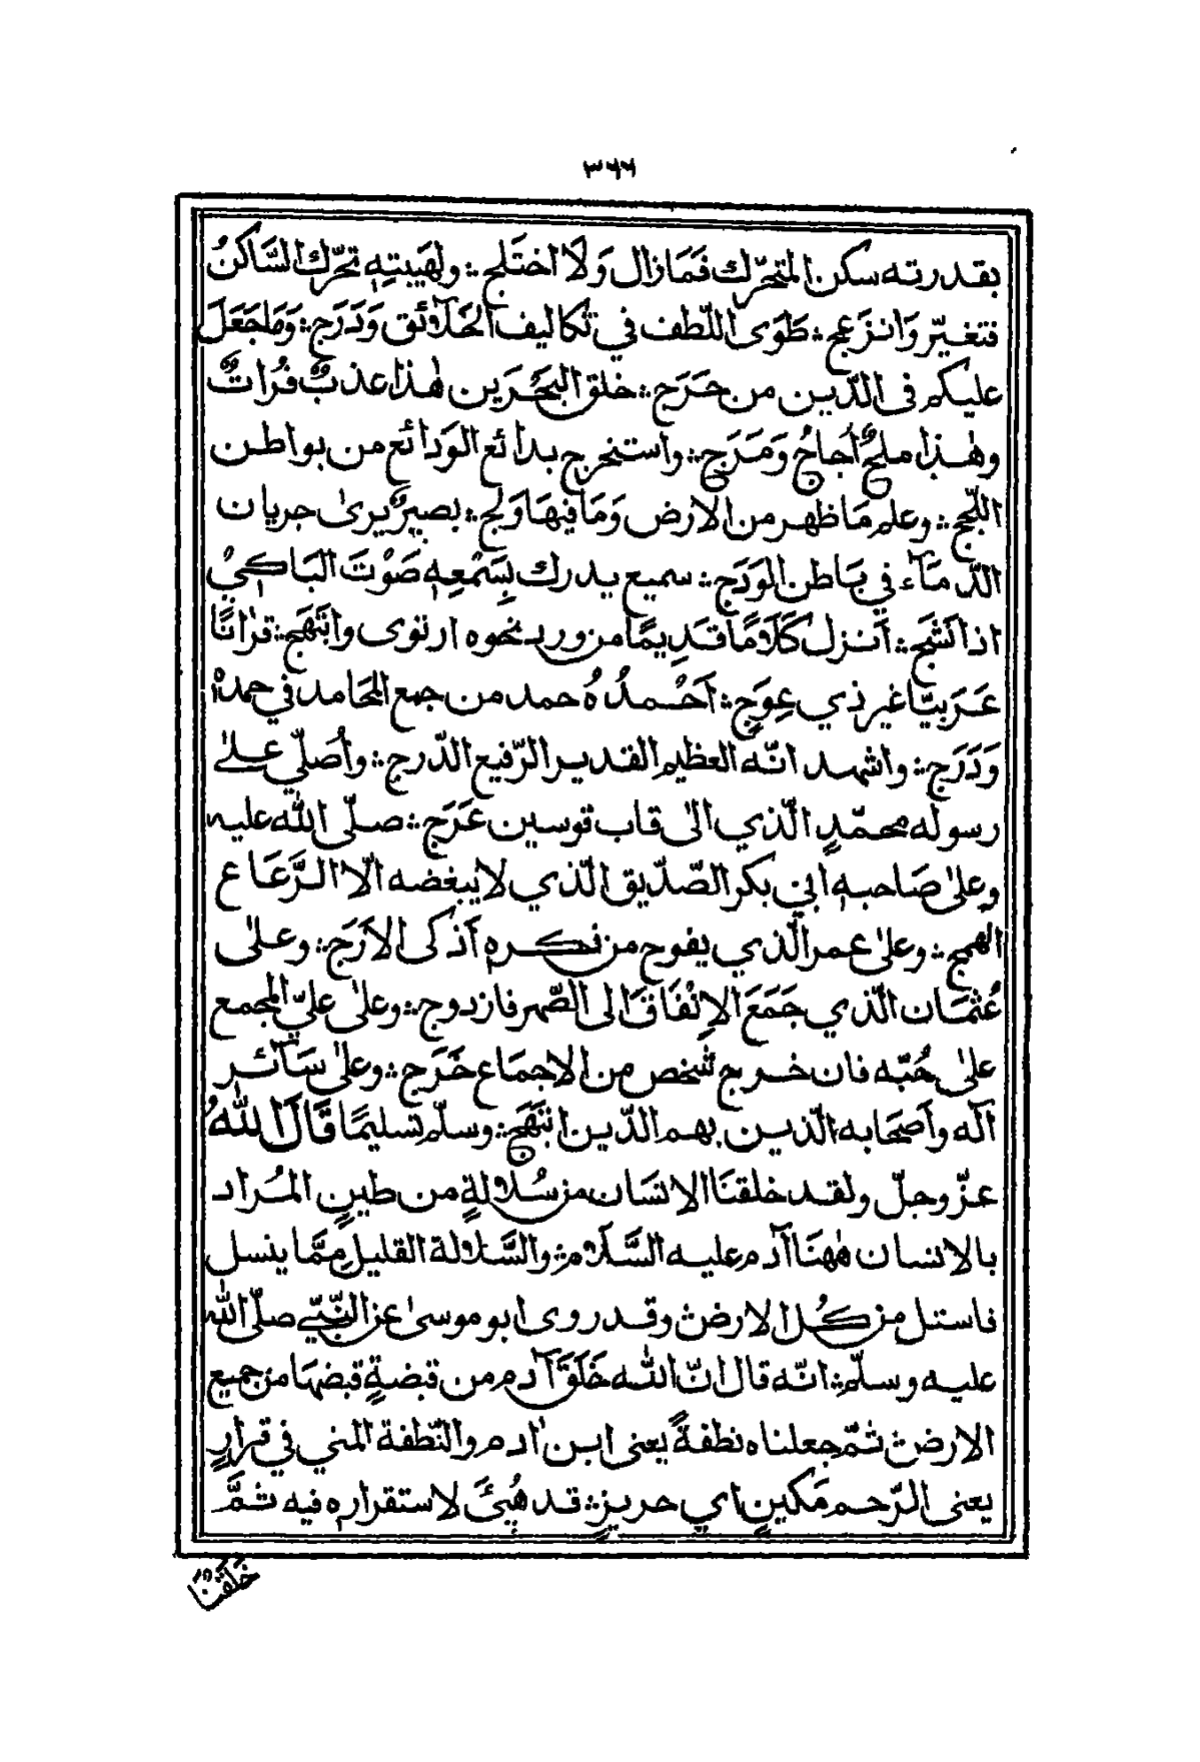 ٣٦٦
بقدرته سكن المتحرّك فَمَا زال وَلَا اختَلج ؞ ولهَيبتِهٖ تحَرّك السَّاكنُ
فتغيّر وَانزَعج ؞ طَوَى اللّطف في تكاليف الخَلَآئق وَدَرَج ؞ وَمَا جَعَلَ
عليكم فى الدّين من حَرَج ؞ خلق البَحَرَين هٰذا عذبٌ فُراتٌ
وهٰذا ملحٌ اُجَاجٌ وَمَرَج ؞ واستخرج بدائع الوَدائع من بواطن
اللّجج ؞ وعلم مَا ظهر من الارض وَمَا فيهَا وَلج ؞ بصيرٌ يرىٰ جريان
الدّمَآء في بَاطن الوَدَج ؞ سميع يدرك بِسَمْعِهٖ صَوْتَ البَاكيْ
اذا نَشَجَ ؞ اَنزل كَلَامًا قَدِيمًا من ورد نحوه ارتوى وانتَهَج ؞ قرانًا
عَرَبيًّا غير ذي عِوَجٍ ؞ اَحْمدُهُ حمد من جمع المحَامد في حمدهْ
وَدَرَج ؞ واشهد انّه العظيم القدير الرّفيع الدّرج ؞ واُصَلّي علےٰ
رسوله محمّدٍ الّذي الىٰ قاب قوسين عَرَج ؞ صلّى الله عليه
وعلىٰ صَاحبهٖ ابي بكر الصّدّيق الّذي لا يبغضه الّا الرَّعَاع
الهمج ؞ وعلىٰ عمر الّذي يفوح من ذكره اَذكى الاَرَج ؞ وعلىٰ
عُثمَان الّذي جَمَعَ الاِنْفَاقَ الى الصّهر فازدوج ؞ وعلىٰ عليّ المجمع
علىٰ حُبّه فان خرج شخص من الاجمَاع خَرَج ؞ وعلىٰ سَآئر
آله وأصحَابه الّذين بهم الدّين انتَهَج ؞ وسلّم تسليمًا قَالَ اللهُ
عزّ وجلّ ولقد خلقنَا الانسَان من سُلالةٍ من طينٍ المُراد
بالانسان هٰهنَا آدم عليه السَّلَام ؞ والسَّلالة القليل مِمَّا ينسل
فاستل من كُل الارض ؞ وقد روى ابو موسىٰ عن النّبيّے صلّى الله
عليه وسلّم ؞ انّه قال انّ الله خَلَقَ آدم من قبضةٍ قبضهَا من جميع
الارض ؞ ثمّ جعلناه نطفةً يعنى ابن اٰدم والنّطفة المني في قرارٍ
يعنى الرّحم مَكينٍ اي حريزٍ ؞ قد هُيئَ لاستقراره فيه ثمَّ
خَلَقْنَا